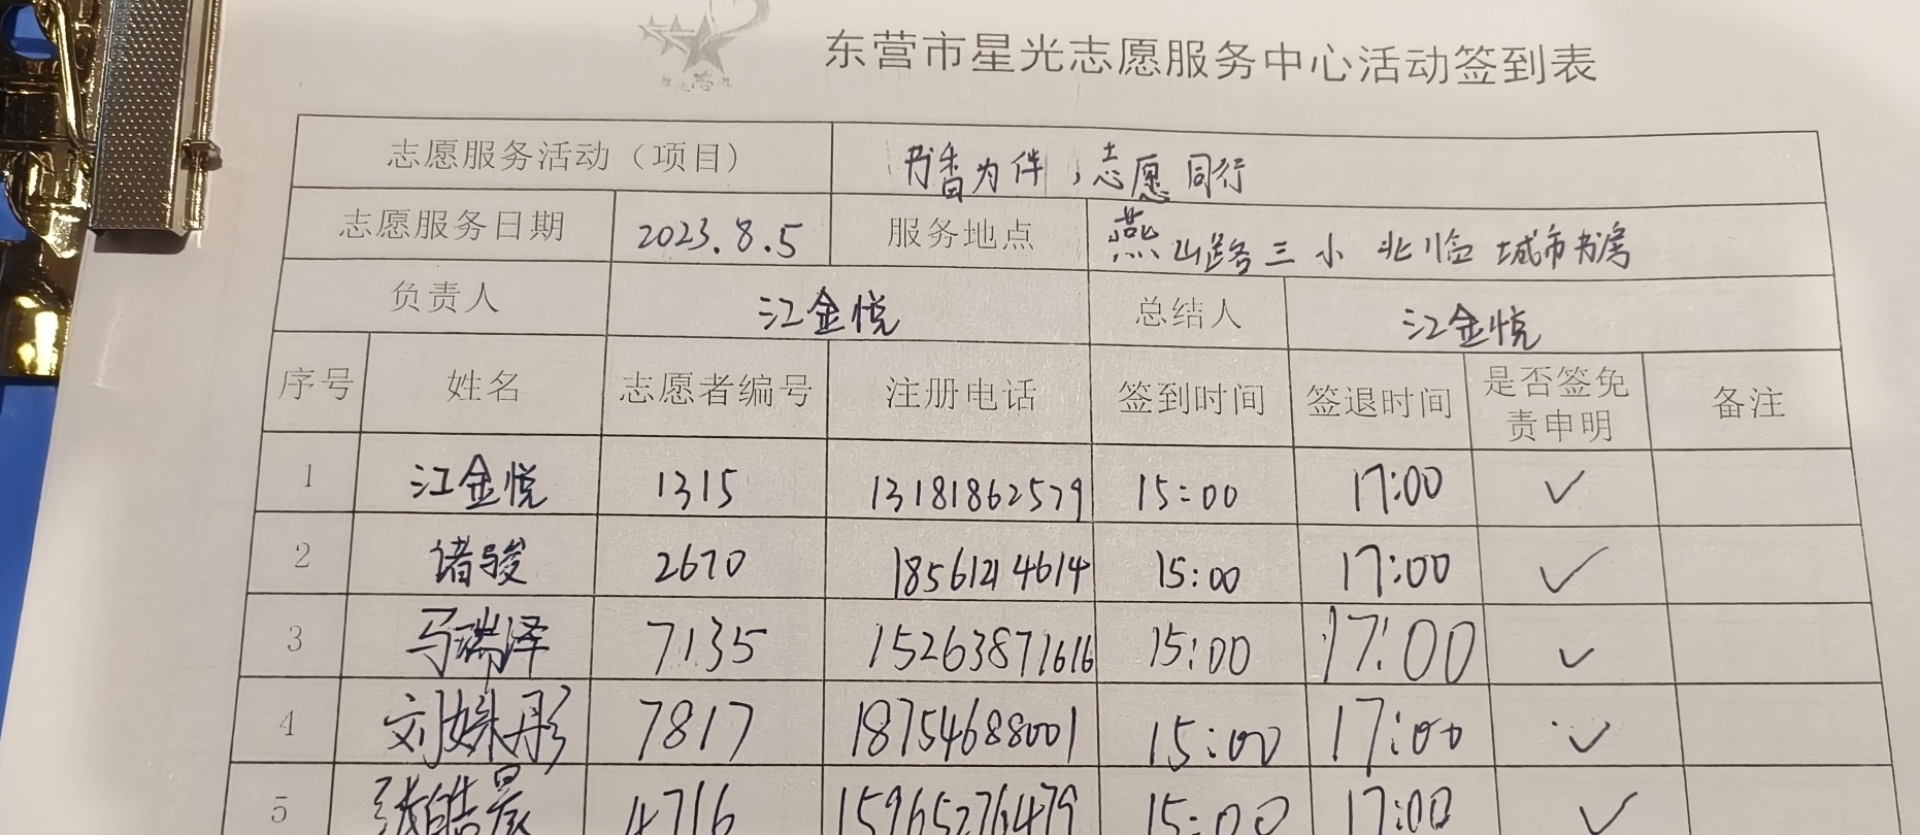 东营市星光志愿服务中心活动签到表
志愿服务活动（项目） 书香为伴，志愿同行
志愿服务日期 2023.8.5 服务地点 燕山路三小北临城市书房
负责人 江金悦 总结人 江金悦
序号 姓名 志愿者编号 注册电话 签到时间 签退时间 是否签免责申明 备注
1 江金悦 1315 13181862579 15:00 17:00 ✓
2 诸骏 2670 18561214614 15:00 17:00 ✓
3 马瑞泽 7135 15263871616 15:00 17:00 ✓
4 刘姝彤 7817 18754688001 15:00 17:00 ✓
5 张皓晨 4716 15965276479 15:00 17:00 ✓